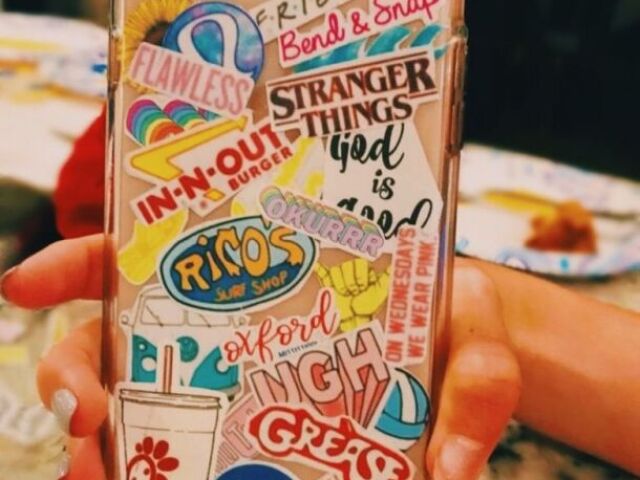 F·R·I
Bend & Snap
FLAWLESS
STRANGER
THINGS
God
is
good
IN-N-OUT
BURGER
OKURRR
RICO'S
SURF SHOP
ON WEDNESDAYS
WE WEAR PINK.
oxford
NGH
GREASE